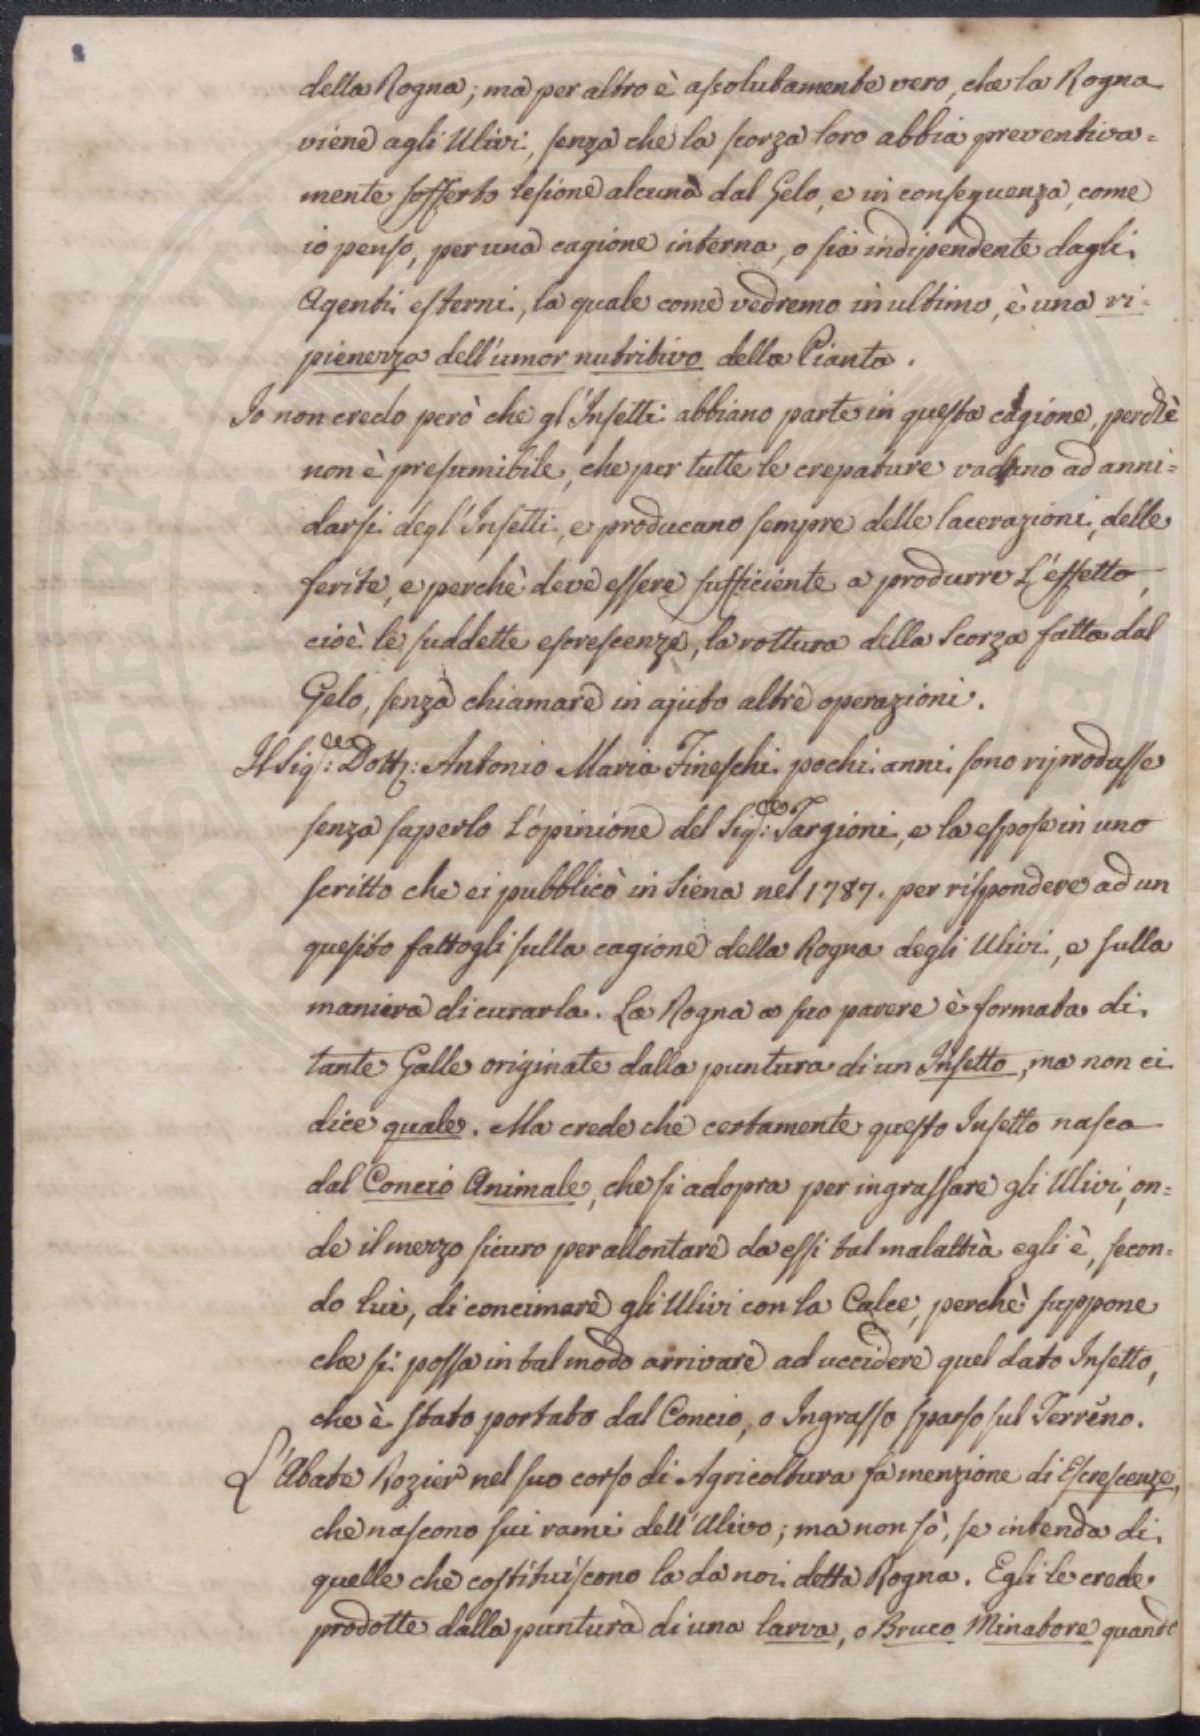 8
della Rogna; ma per altro è assolutamente vero, che la Rogna
viene agli Ulivi, senza che la scorza loro abbia preventiva=
mente sofferto lesione alcuna dal Gelo, e in conseguenza, come
io penso, per una cagione interna, o sia indipendente dagli
Agenti esterni, la quale come vedremo in ultimo, è una ri=
pienezza dell'umor nutritivo della Pianta.
Io non credo però che gl'Insetti abbiano parte in questa cagione, perchè
non è presumibile, che per tutte le crepature vadano ad anni=
darsi degl'Insetti, e producano sempre delle lacerazioni, delle
ferite, e perchè deve essere sufficiente a produrre L'effetto,
cioè le suddette escrescenze, la rottura della Scorza fatta dal
Gelo, senza chiamare in ajuto altre operazioni.
Il Sig.re Dott: Antonio Maria Fineschi pochi anni sono riprodusse
senza saperlo L'opinione del Sig.re Targioni, e la espose in uno
scritto che ei pubblicò in Siena nel 1787. per rispondere ad un
quesito fattogli sulla cagione della Rogna degli Ulivi, e sulla
maniera di curarla. La Rogna a suo parere è formata di
tante Galle originate dalla puntura di un Insetto, ma non ci
dice quale. Ma crede che certamente questo Insetto nasca
dal Concio Animale, che si adopra per ingrassare gli Ulivi, on=
de il mezzo sicuro per allontare da essi tal malattia egli è, secon=
do lui, di concimare gli Ulivi con la Calce, perchè suppone
che si possa in tal modo arrivare ad uccidere quel dato Insetto,
che è stato portato dal Concio, o Ingrasso sparso sul Terreno.
L'Abate Rozier nel suo corso di Agricoltura fà menzione di Escrescenze,
che nascono sui rami dell'Ulivo; ma non sò, se intenda di
quelle che costituiscono la da noi detta Rogna. Egli le crede
prodotte dalla puntura di una larva, o Bruco Minatore quando